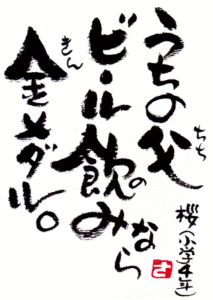 うちの父
ちち
ビール飲みなら
の
金メダル。
きん
桜(小学4年)
さ